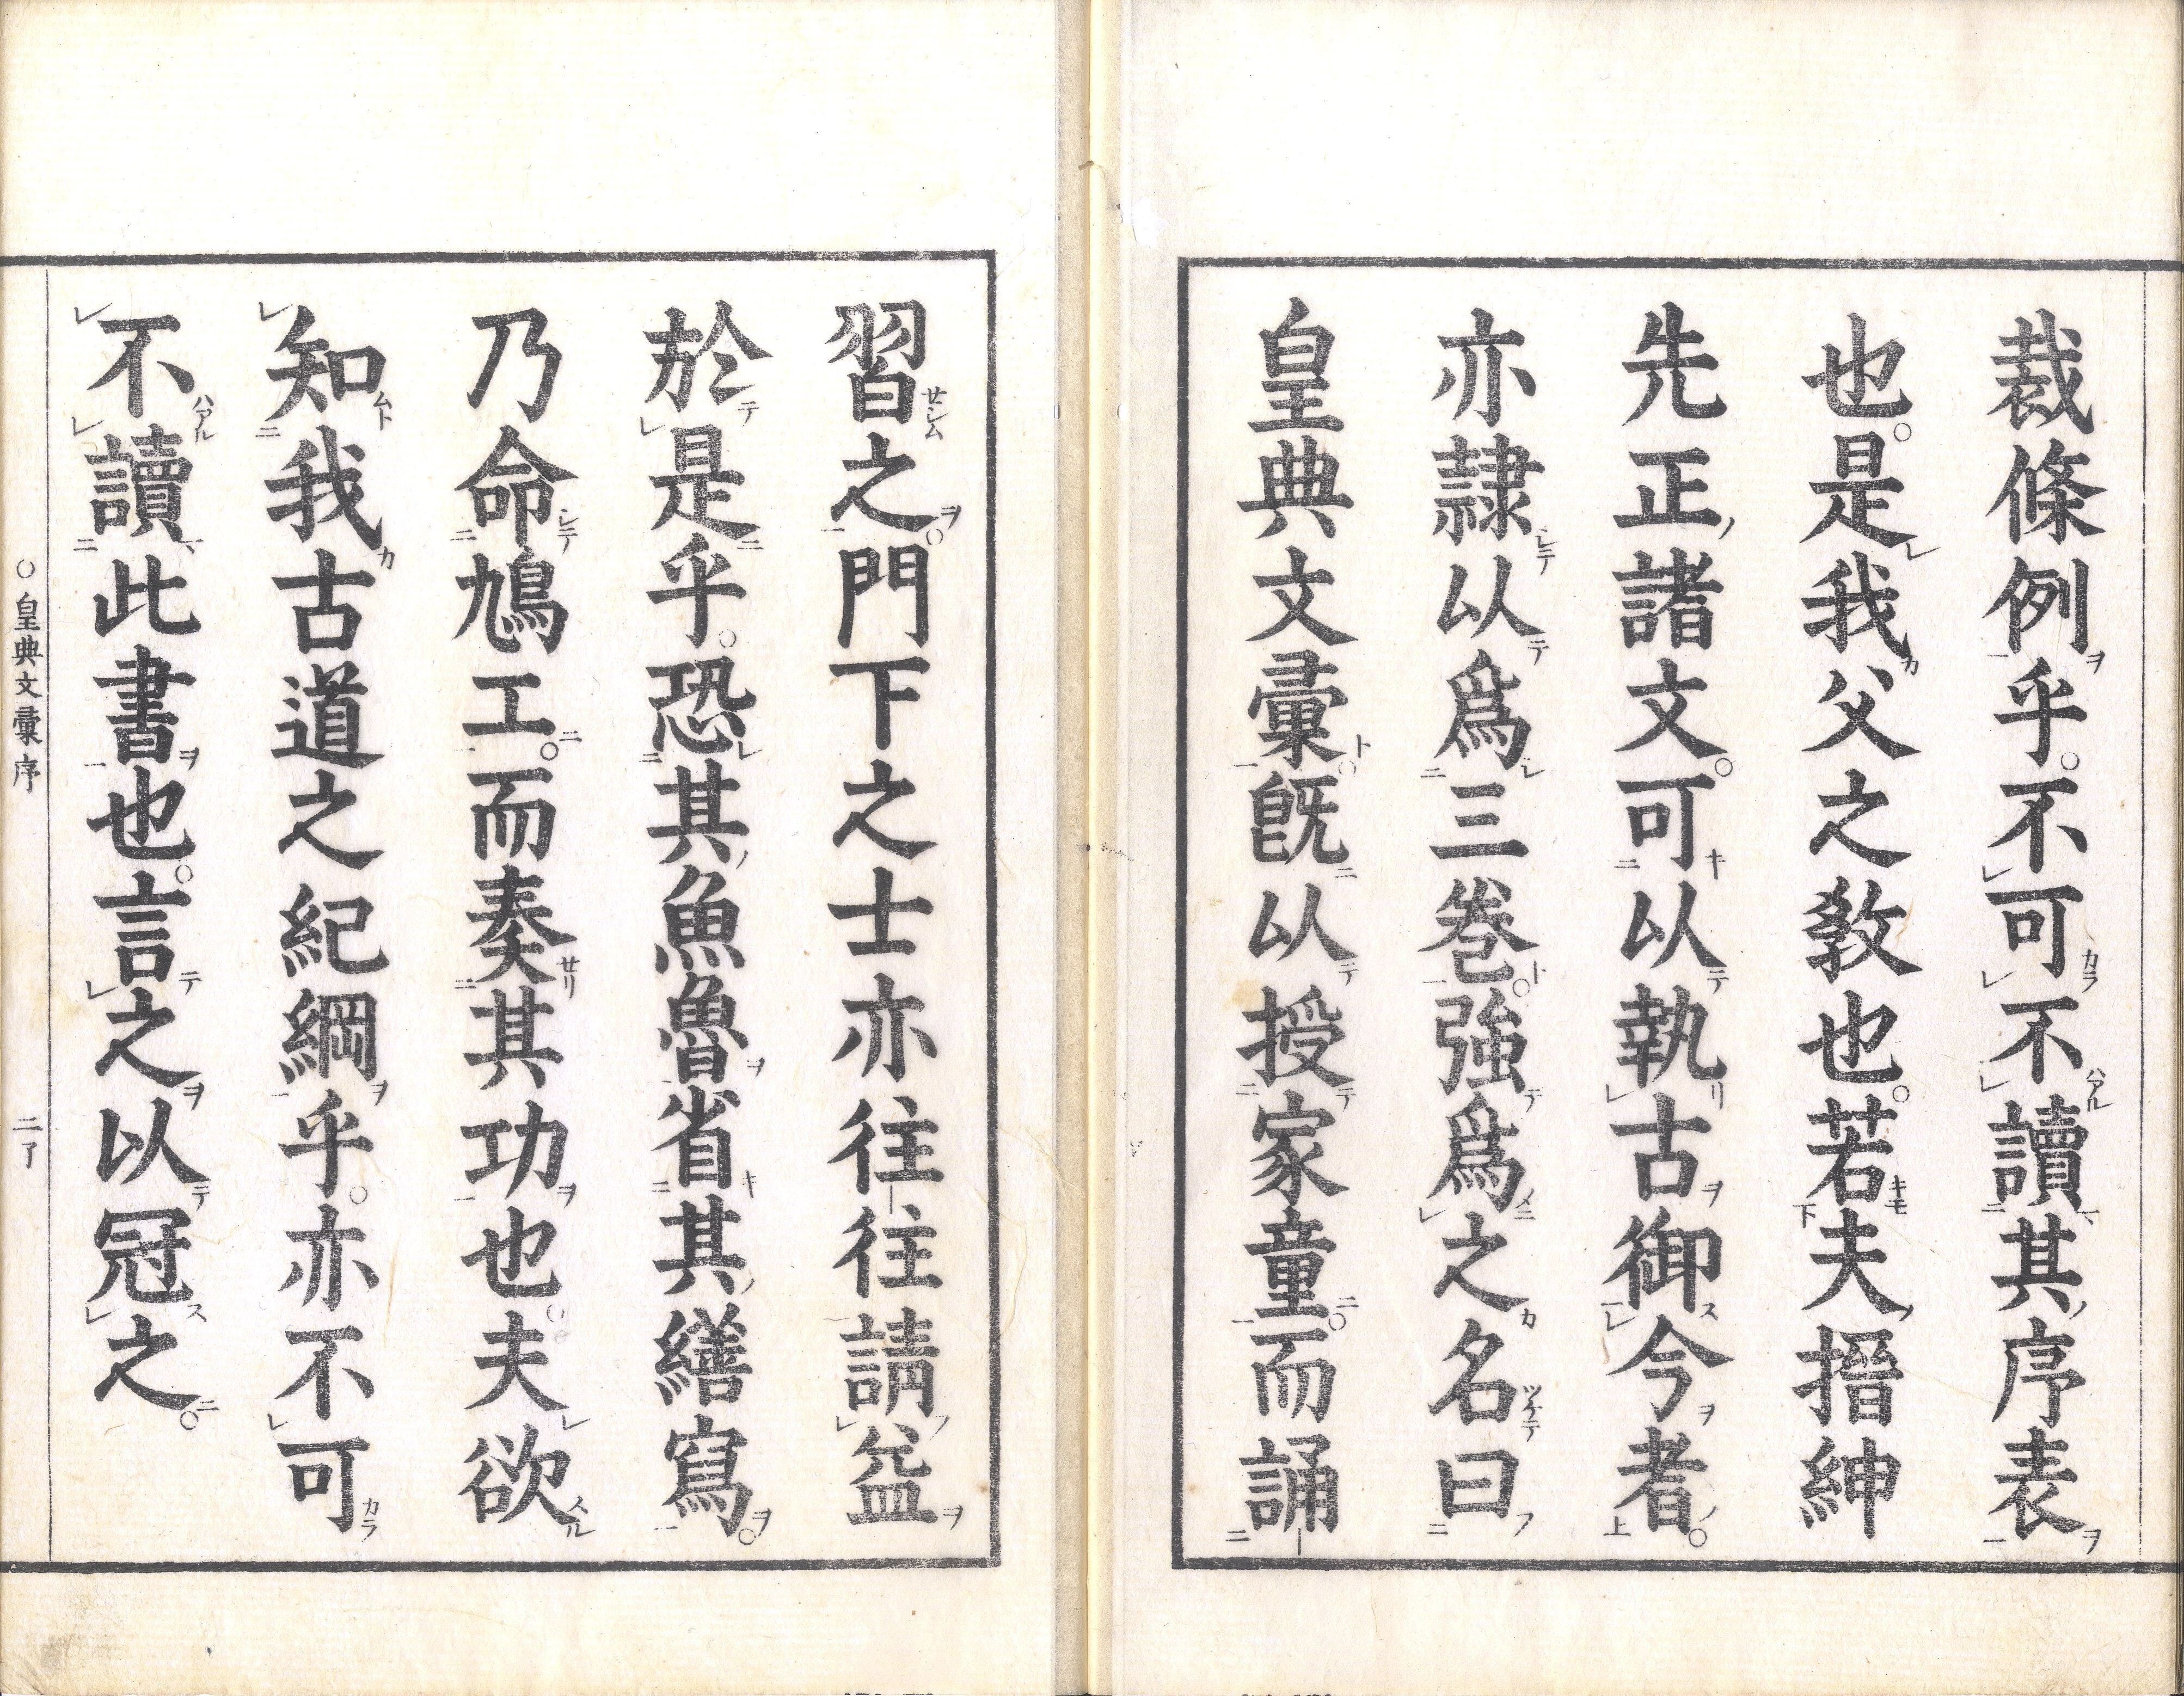 裁條例乎。不可不讀其序表
也。是我父之敎也。若夫搢紳
先正諸文。可以執古御今者。
亦隷以爲三卷。強爲之名曰
皇典文彙。既以授家童。而誦
習之。門下之士亦往往請益
於是乎。恐其魚魯省其繕寫。
乃命鳩工。而奏其功也。夫欲
知我古道之紀綱乎。亦不可
不讀此書也。言之以冠之。
○皇典文彙序 二了